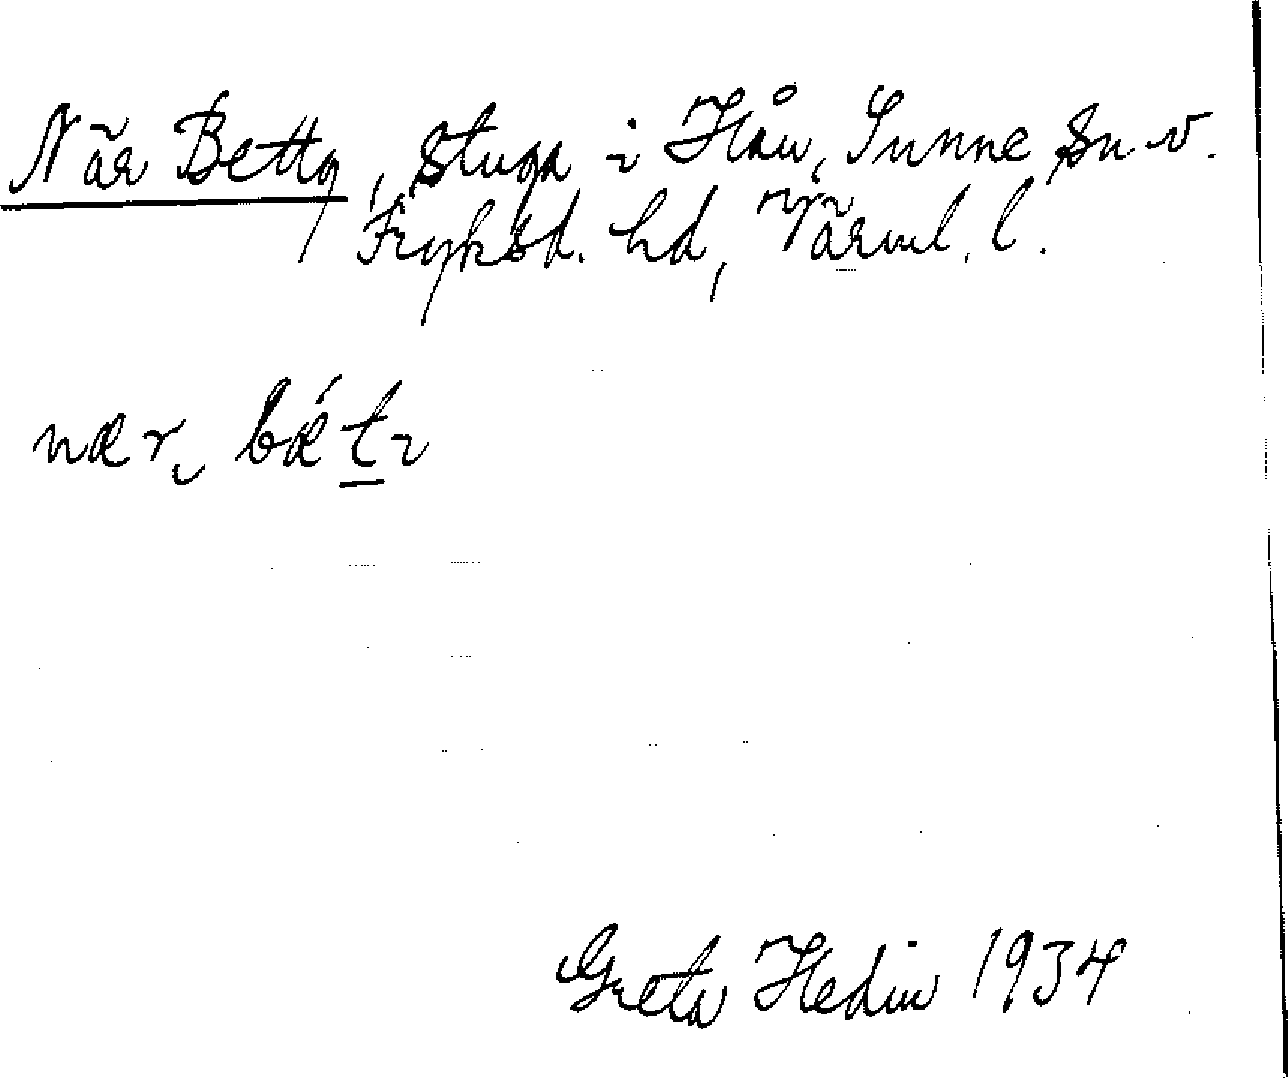 När Betty, stuga i Hån, Sunne sn v.
Fryksd. hd, Värml. l.
nær, bǽtı
Greta Hedin 1934